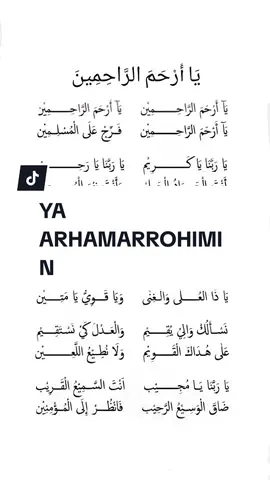 يَا أَرْحَمَ الرَّاحِمِينَ
يَآ أَرْحَمَ الرَّاحِمِيْن يَآ أَرْحَمَ الرَّاحِمِيْن
يَآ أَرْحَمَ الرَّاحِمِيْن فَرِّجْ عَلَى الْمُسْلِمِيْن
يَا رَبَّنَا يَا كَرِيْم يَا رَبَّنَا يَا رَحِيْم
YA
ARHAMARROHIMI
N
يَا ذَا الْعُلَى وَالْغِنَى وَيَا قَوِيُّ يَا مَتِيْن
نَسْأَلُكَ وَالِيْ يُقِيْم وَالْعَدْلَ كَيْ نَسْتَقِيْم
عَلَى هُدَاكَ الْقَوِيْم وَلَا نُطِيْعُ اللَّعِيْن
يَا رَبَّنَا يَا مُجِيْب اَنْتَ السَّمِيْعُ الْقَرِيْب
ضَاقَ الْوَسِيْعُ الرَّحِيْب فَانْظُرْ إِلَى الْمُؤْمِنِيْن